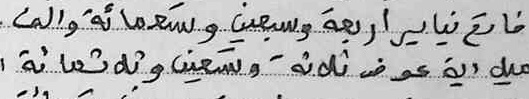 فاتح نياير اربعة وسبعين وتسعمائة والف
ميلادية عوض ثلاثة وتسعين وثلاثمائة